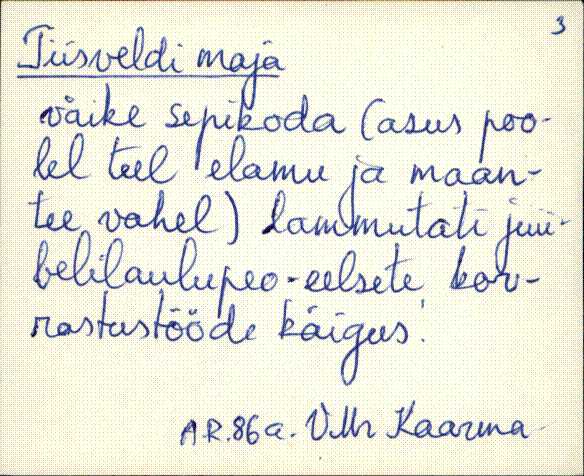 3
Tiisveldi maja
väike sepikoda (asus poo-
lel teel elamu ja maan-
tee vahel) lammutati juu-
belilaulupeo-eelsete kor-
rastustööde käigus.
A.R.86a. Kaarma